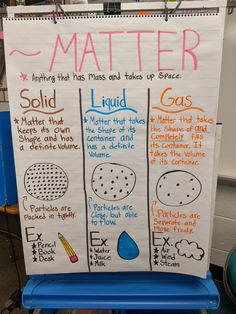 ~ MATTER ~
* Anything that has Mass and takes up Space.
Solid
* Matter that
keeps its own
Shape and
has a definite
Volume.
* Particles are
Packed in tightly.
Ex
* Pencil
* Book
* Desk
Liquid
* Matter that takes
the Shape of its
container and
has a definite
Volume.
* Particles are
Close, but able to
flow.
Ex
* Water
* Juice
* Milk
Gas
* Matter that takes
the Shape of and
Completely fills
its Container. It
takes the Volume
of its container.
* Particles are
Separate and
Move freely.
Ex
* Air
* Wind
* Steam